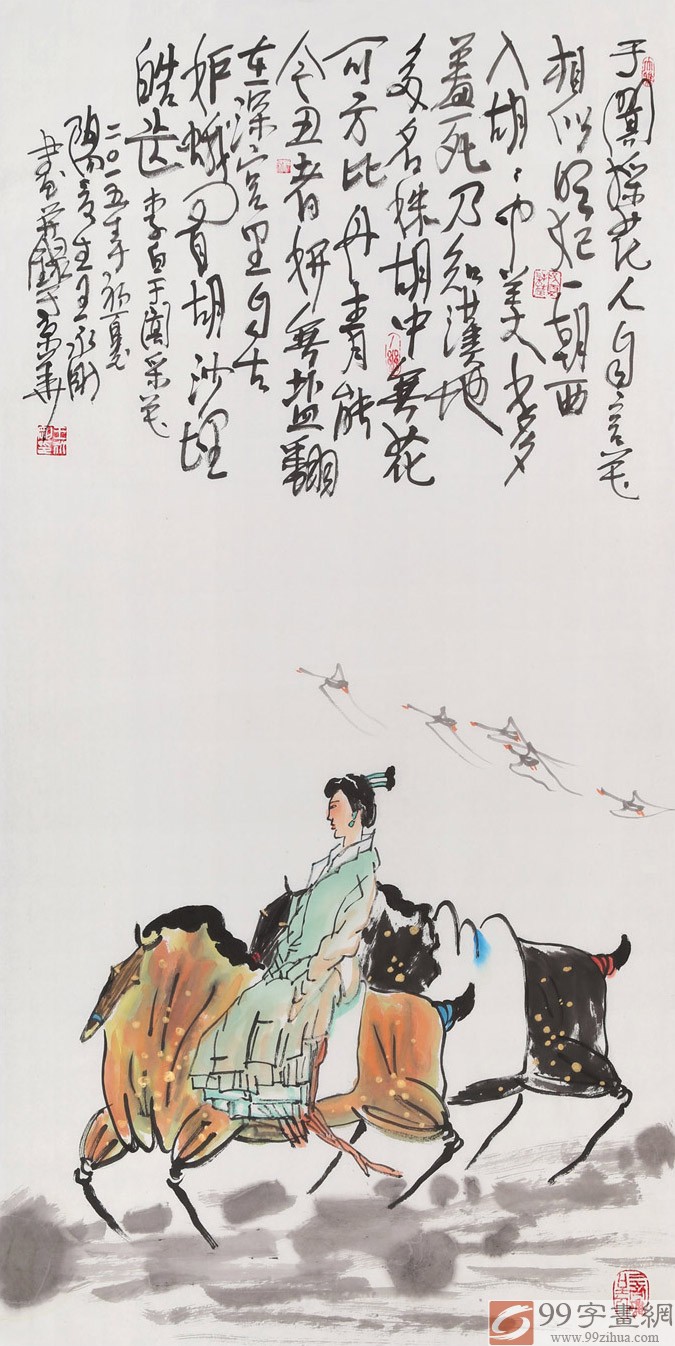 于闐採花人自言花
相似明妃一朝西
入胡々中美女多
羞死乃知漢地
多名姝胡中無花
可方比丹青能
令丑者妍無鹽翻
在深宫里自古
妒蛾眉胡沙埋
皓齿 李白于闐采花
二〇一五年初夏
王永刚
99字畫網
www.99zihua.com